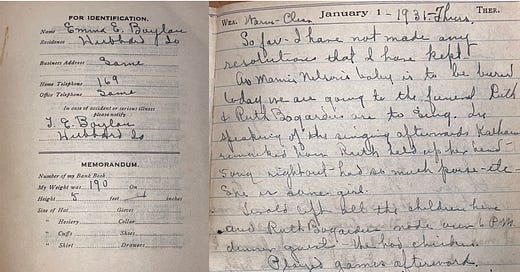 FOR IDENTIFICATION.
Name Emma E. Boylan
Residence Hubbard Io
Business Address Same
Home Telephone 169
Office Telephone Same
In case of accident or serious illness
please notify
T. E. Boylan
Hubbard Io
MEMORANDUM.
Number of my Bank Book
My Weight was 190 On
Height 5 feet 4 inches
Size of Hat Gloves
" Hosiery Collar
" Cuffs Shoes
" Shirt Drawers
WEA. Warm-Clear January 1 - 1931-Thurs. THER.
So far I have not made any
resolutions that I have kept
As Mamie Nelson's baby is to be buried
today we are going to the funeral Ruth
& Ruth Bogardus are to sing. In
speaking of the singing afterwards
remarked how Ruth held up her head -
sang right out - had so much poise - etc
She is some girl.
left all the children here
and Ruth Bogardus made over 6 P.M.
dinner guest. We had chicken.
Played games afterward.